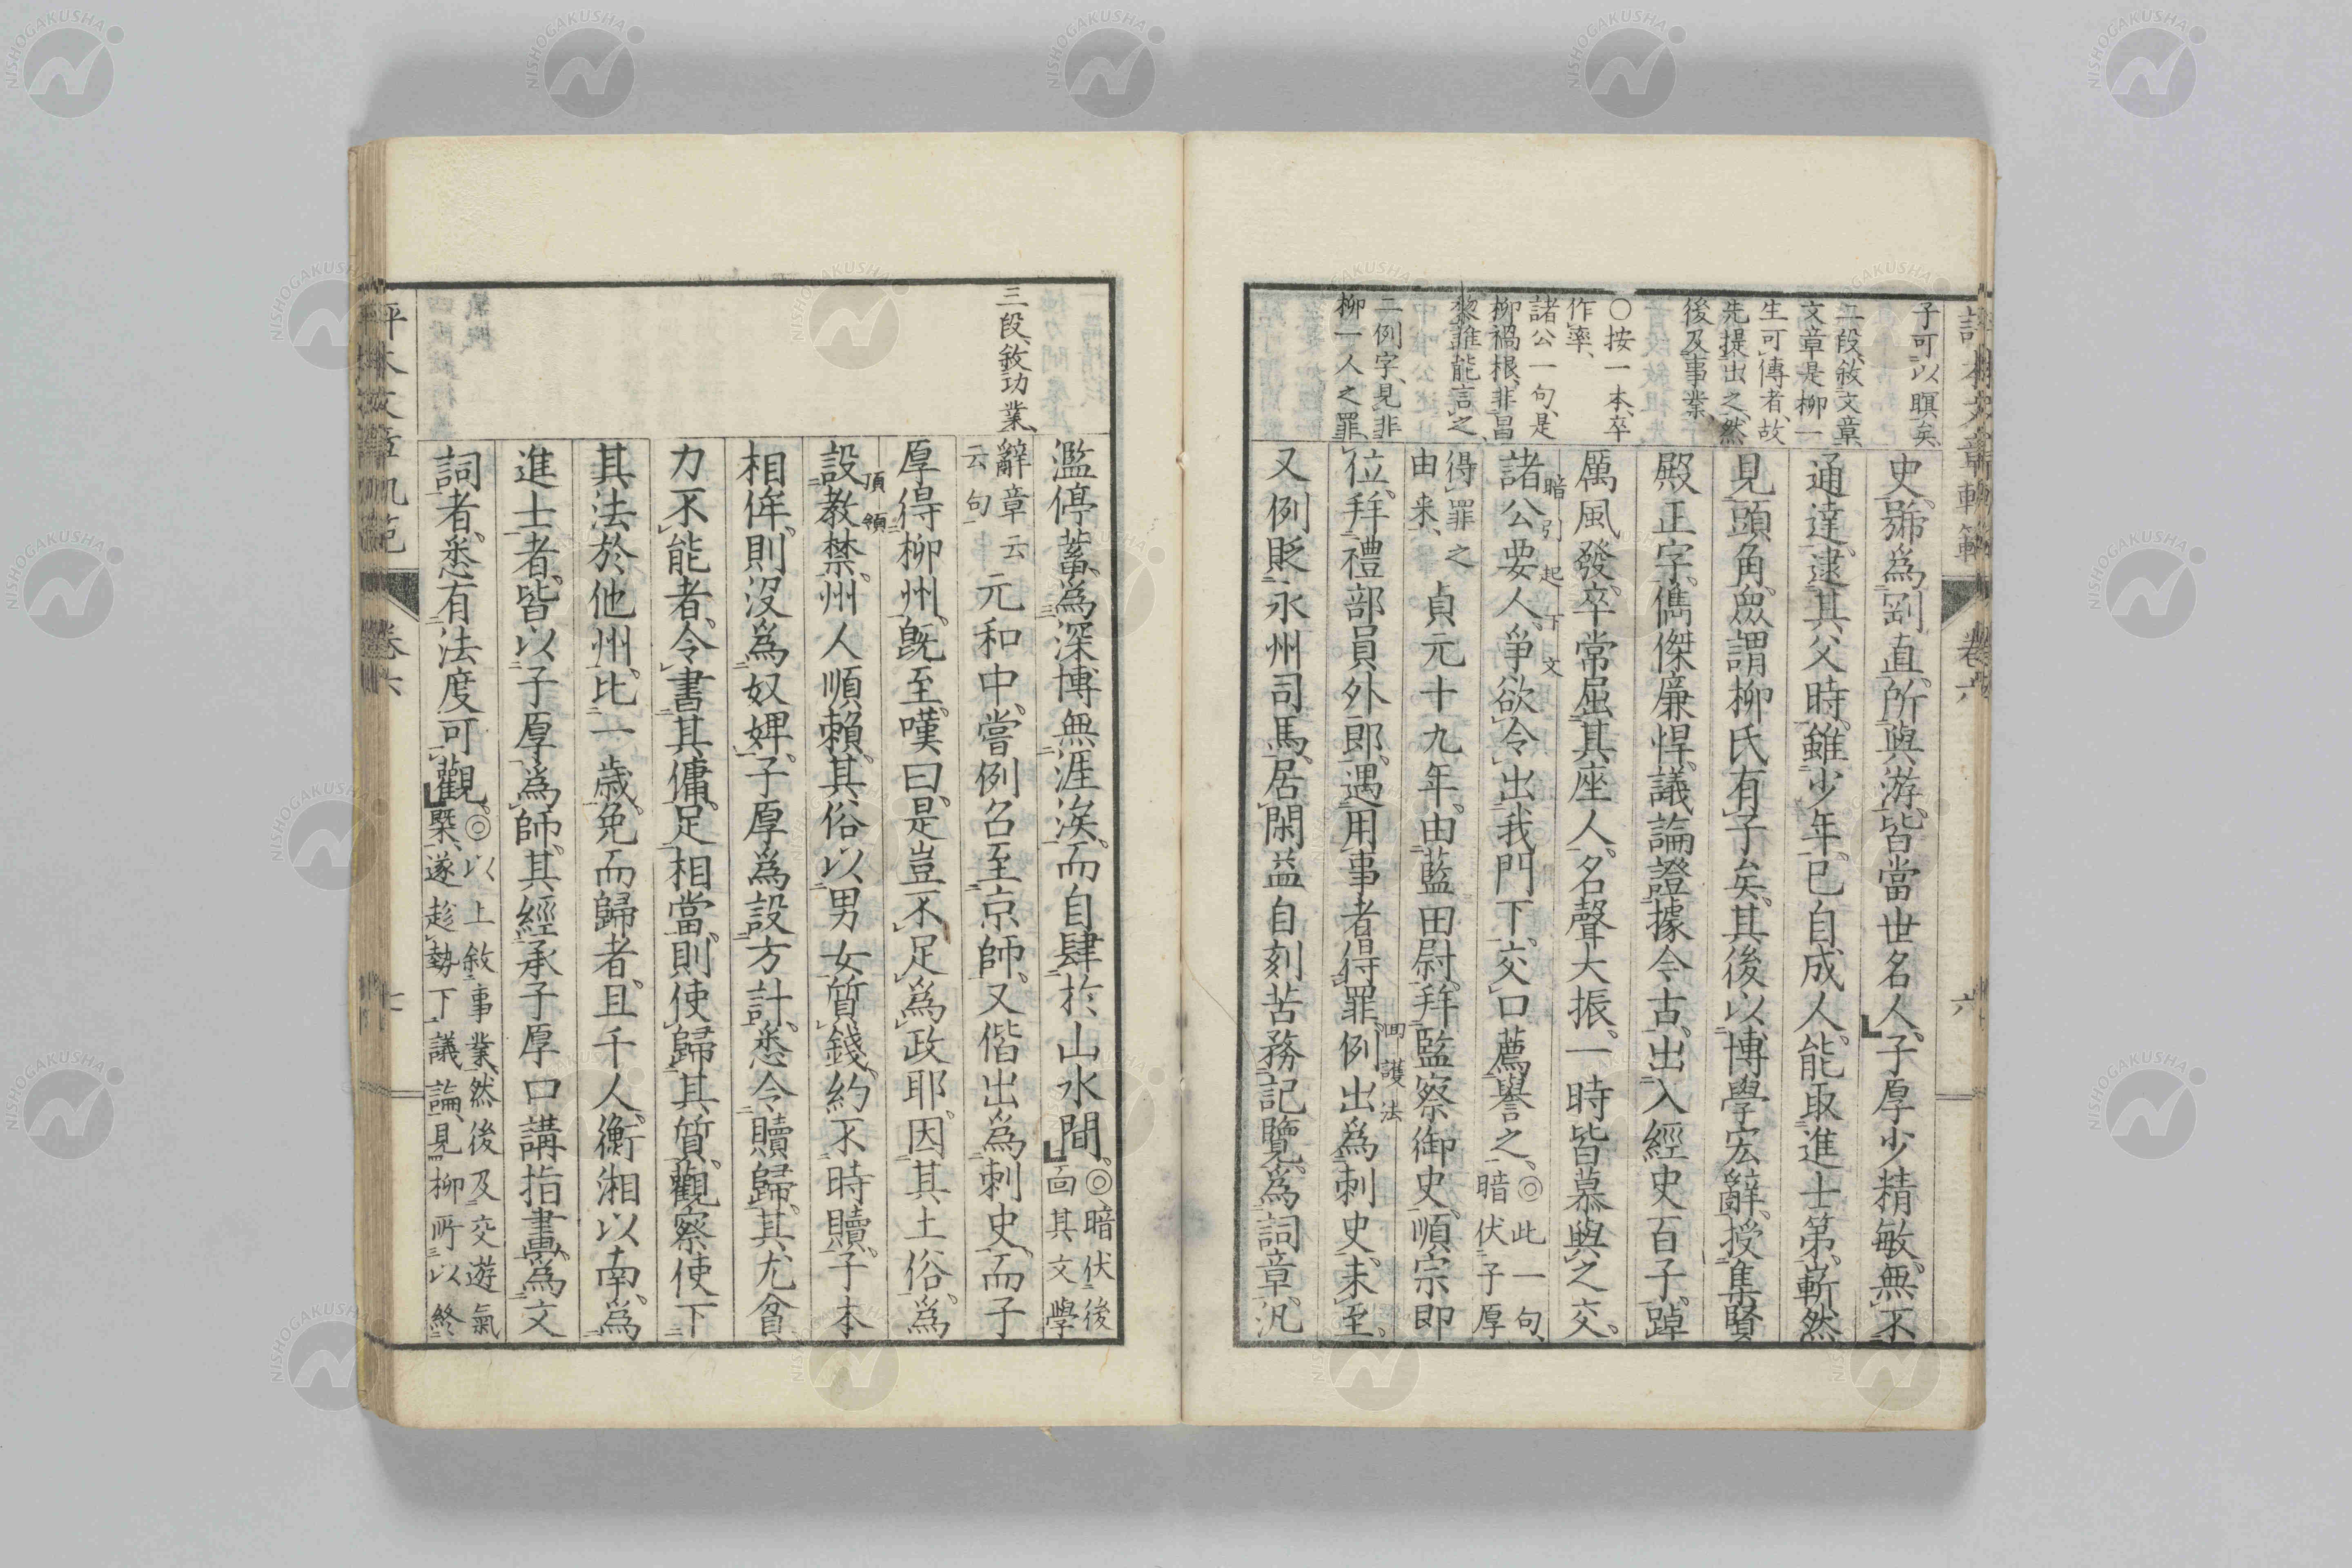 子可以瞑矣
二段敘文章
文章是柳一
生可傳者故
先提出之然
後及事業
○按一本卒
作率
諸公一句是
柳禍根非昌
黎誰能言之
二例字見非
柳一人之罪
史號爲剛直所與游皆當世名人子厚少精敏無不
通達逮其父時雖少年已自成人能取進士第嶄然
見頭角衆謂柳氏有子矣其後以博學宏辭授集賢
殿正字儁傑廉悍議論證據今古出入經史百子踔
厲風發卒常屈其座人名聲大振一時皆慕與之交
暗引起下文
諸公要人爭欲令出我門下交口薦譽之◎此一句
暗伏子厚
得罪之
由来
貞元十九年由藍田尉拜監察御史順宗即
位拜禮部員外郎遇用事者得罪例出爲刺史未至
回護法
又例貶永州司馬居閑益自刻苦務記覽爲詞章汎
卷六
六
三段敘功業
濫停蓄爲深博無涯涘而自肆於山水間◎暗伏後
面其文學
辭章云
云句
元和中嘗例召至京師又偕出爲刺史而子
厚得柳州旣至嘆曰是豈不足爲政耶因其土俗爲
頂領
設教禁州人順賴其俗以男女質錢約不時贖子本
相侔則沒爲奴婢子厚爲設方計悉令贖歸其尤貧
力不能者令書其傭足相當則使歸其質觀察使下
其法於他州比一歲免而歸者且千人衡湘以南爲
進士者皆以子厚爲師其經承子厚口講指畫爲文
詞者悉有法度可觀◎以上敘事業然後及交遊氣
槩遂趁勢下議論見柳所以終
卷六
七